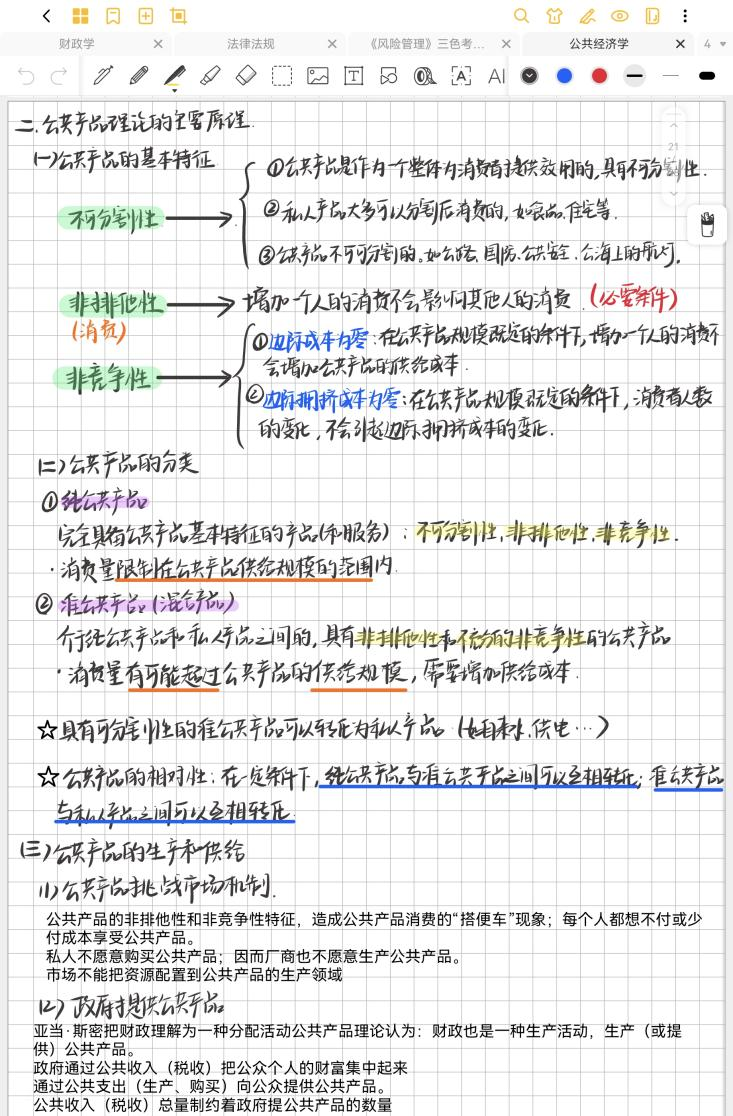 财政学
法律法规
《风险管理》三色考…
公共经济学
4
AI
21
二.公共产品理论的主要原理.
(一)公共产品的基本特征
不可分割性
①公共产品是作为一个整体为消费者提供效用的,具有不可分割性.
②私人产品大多可以分割后消费的,如食品、住宅等.
③公共产品不可分割的。如公路、国防、公共安全、公海上的航灯.
非排他性
(消费)
增加一个人的消费不会影响其他人的消费.(必要条件)
非竞争性
①边际成本为零:在公共产品规模既定的条件下,增加一个人的消费不
会增加公共产品的供给成本.
②边际拥挤成本为零:在公共产品规模既定的条件下,消费者人数
的变化,不会引起边际拥挤成本的变化.
(二)公共产品的分类
①纯公共产品
完全具备公共产品基本特征的产品(和服务):不可分割性,非排他性,非竞争性.
·消费量限制在公共产品供给规模的范围内.
②准公共产品(混合产品)
介于纯公共产品和私人产品之间的,具有非排他性和不充分的非竞争性的公共产品
·消费量有可能超过公共产品的供给规模,需要增加供给成本.
☆具有可分割性的准公共产品可以转化为私人产品(如自来水.供电…)
☆公共产品的相对性:在一定条件下,纯公共产品与准公共产品之间可以互相转化;准公共产品
与私人产品之间可以互相转化.
(三)公共产品的生产和供给
(1)公共产品挑战市场机制.
公共产品的非排他性和非竞争性特征，造成公共产品消费的“搭便车”现象；每个人都想不付或少
付成本享受公共产品。
私人不愿意购买公共产品；因而厂商也不愿意生产公共产品。
市场不能把资源配置到公共产品的生产领域
(2)政府提供公共产品
亚当·斯密把财政理解为一种分配活动公共产品理论认为：财政也是一种生产活动，生产（或提
供）公共产品。
政府通过公共收入（税收）把公众个人的财富集中起来
通过公共支出（生产、购买）向公众提供公共产品。
公共收入（税收）总量制约着政府提公共产品的数量